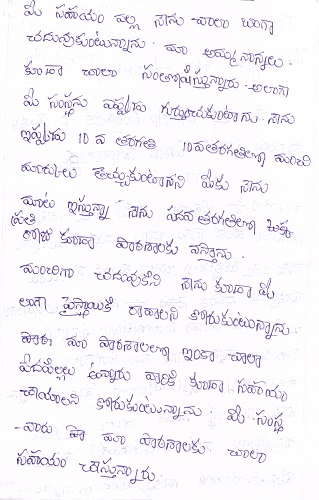 మీ సహాయం వల్ల నేను చాలా బాగా
చదువుకుంటున్నాను. మా అమ్మ నాన్నలు.
కూడా చాలా సంతోషిస్తున్నారు. అలాగే
మీ సంస్థను ఎప్పుడు గుర్తుంచుకుంటాను. నేను
ఇప్పుడు 10 వ తరగతి 10వతరగతిలో మంచి
మార్కులు తెచ్చుకుంటానని మీకు నేను
మాట ఇస్తున్నా నేను పదవతరగతిలో
ప్రతి రోజు కూడా పాఠశాలకు వస్తాను.
మంచిగా చదువుకొని నేను కూడా మీ
లాగా పైస్థాయికి రావాలని కోరుకుంటున్నాను.
మా పాఠశాలలో ఇంకా చాలా
పేదపిల్లలు ఉన్నారు వారికి కూడా సహాయం
చేయాలని కోరుకుంటున్నాను. మీ సంస్థ
వారు మా పాఠశాలకు. చాలా
సహాయం చేస్తున్నారు.